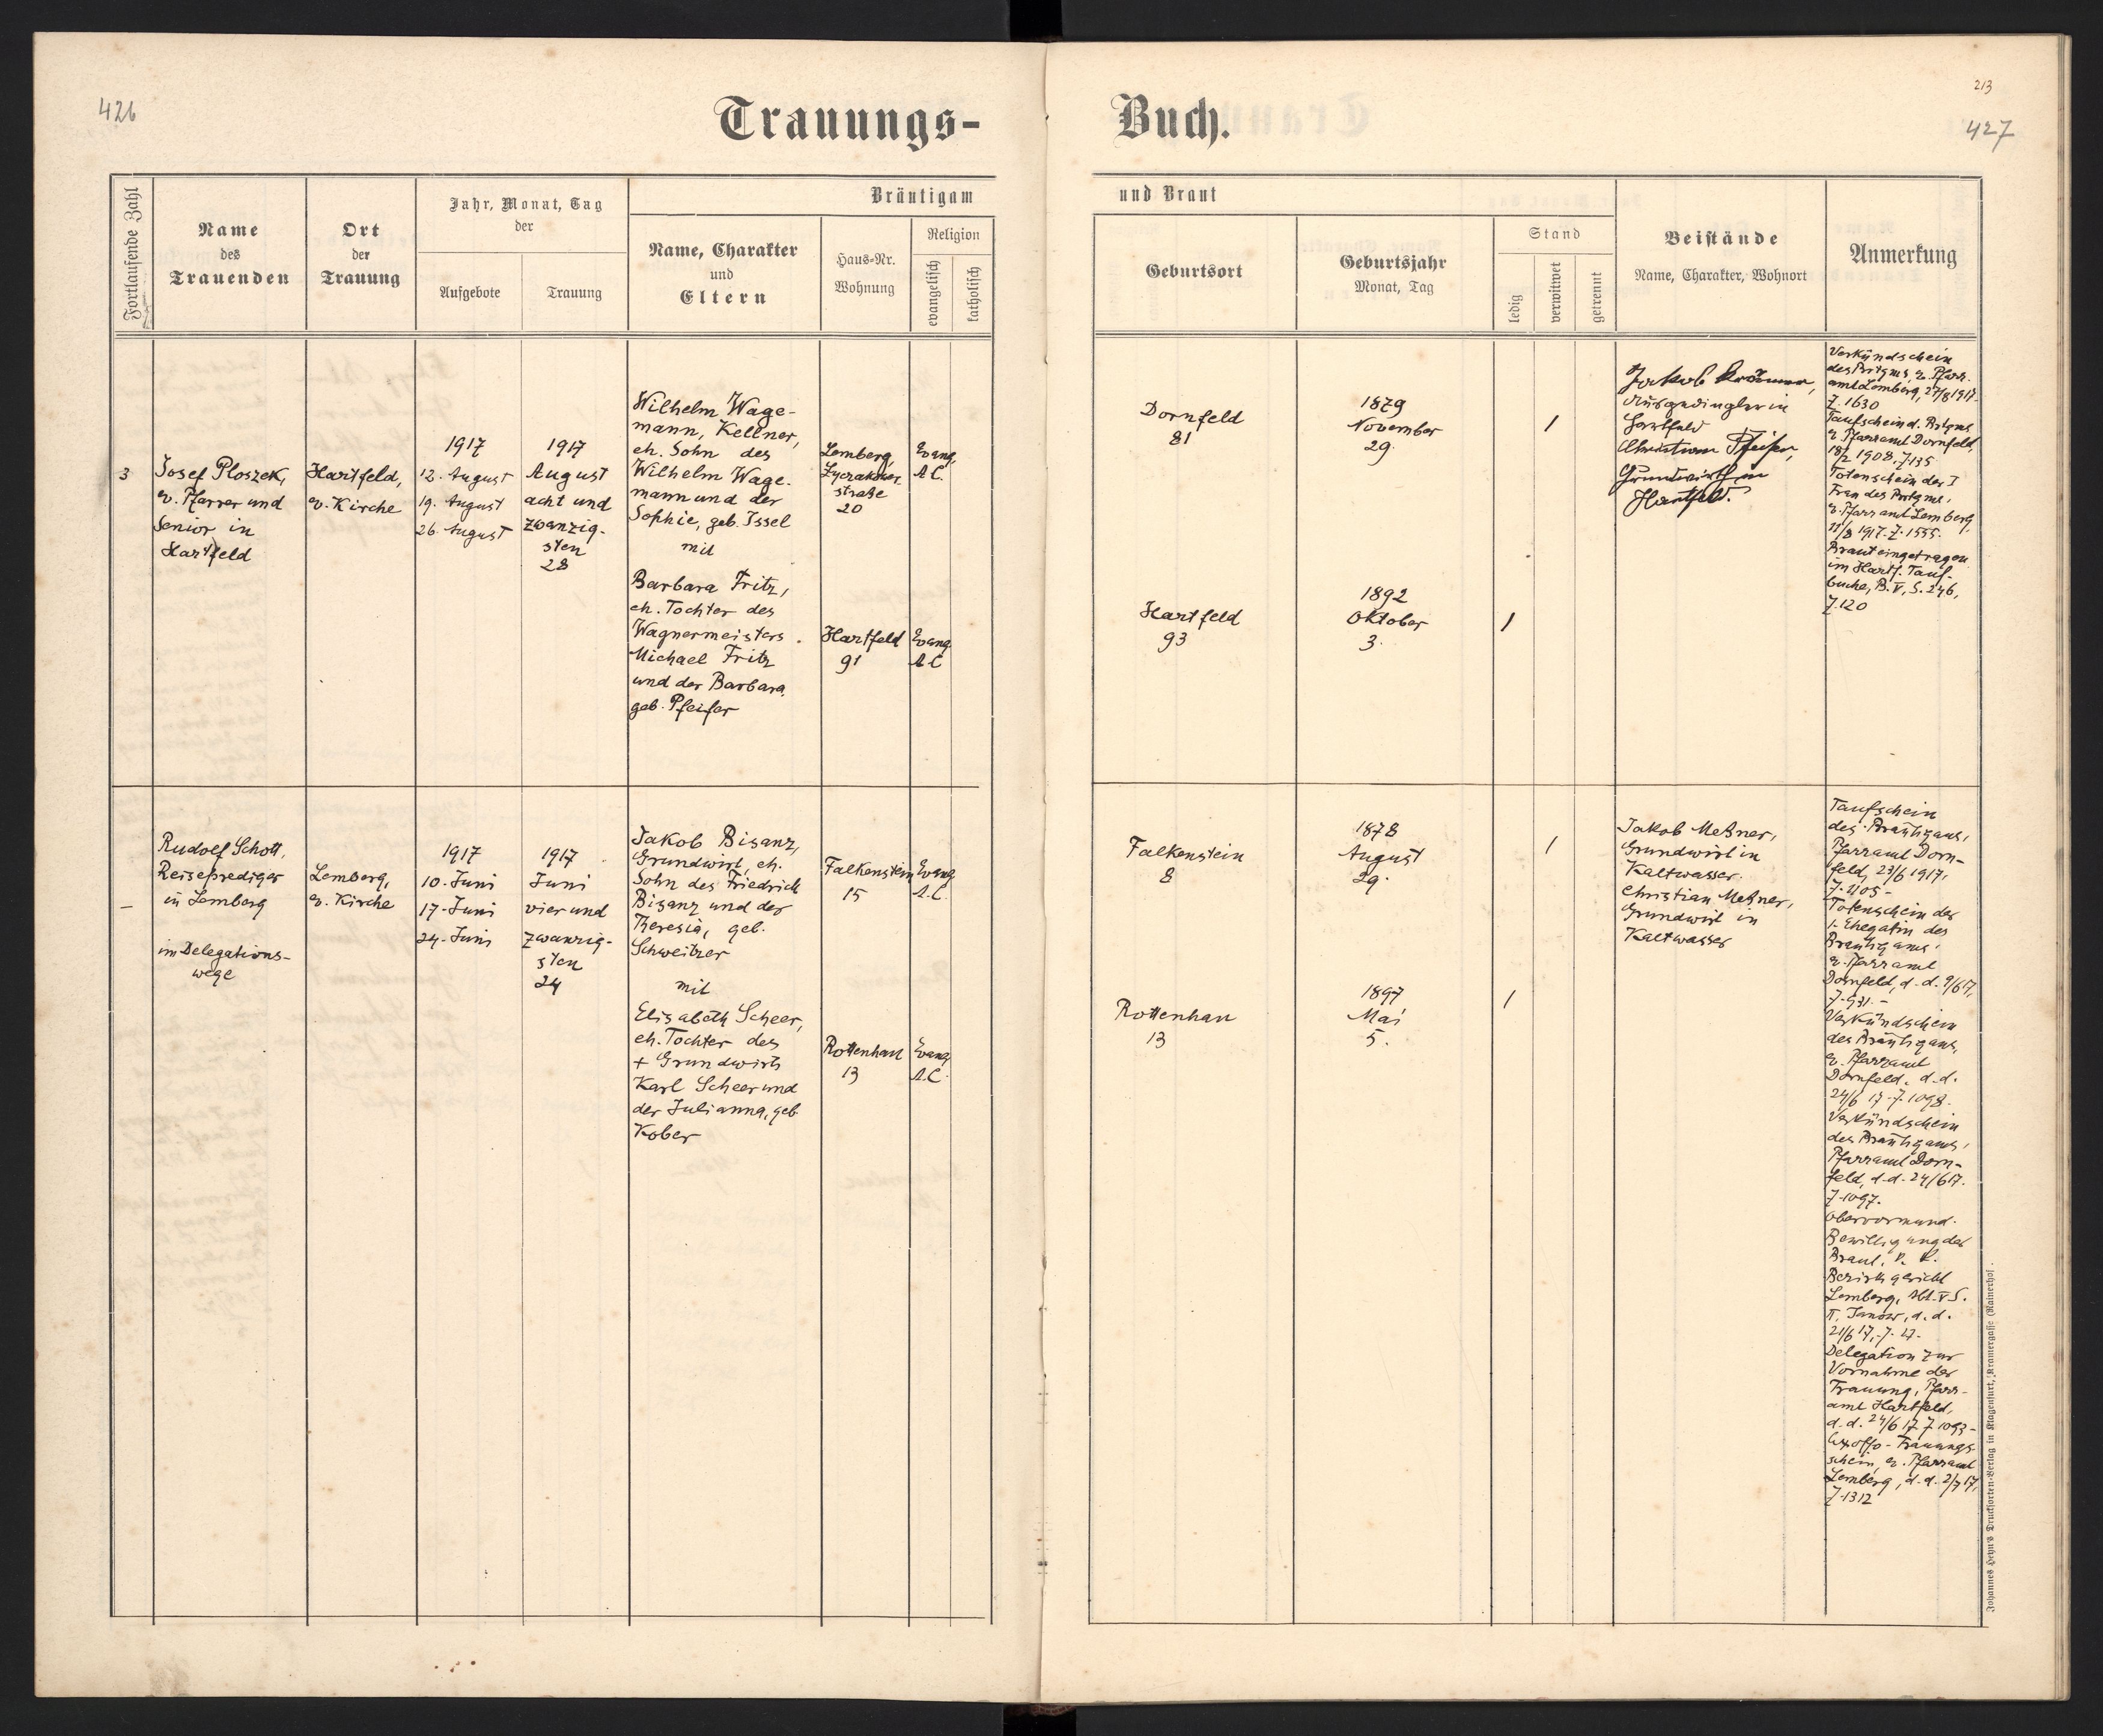 426
Trauungs-
Fortlaufende Zahl
Name
des
Trauenden
Ort
der
Trauung
Jahr, Monat, Tag
der
Aufgebote
Trauung
Bräutigam
Name, Charakter
und
Eltern
Haus-Nr.
Wohnung
Religion
evangelisch
katholisch
3
Josef Ploszek,
ev. Pfarrer und
Senior in
Hartfeld
Hartfeld,
ev. Kirche
1917
12. August
19. August
26. August
1917
August
acht und
zwanzig-
sten
28
Wilhelm Wage-
mann, Kellner,
eh. Sohn des
Wilhelm Wage-
mann und der
Sophie, geb. Issel
mit
Barbara Fritz,
eh. Tochter des
Wagnermeisters
Michael Fritz
und der Barbara
geb. Pfeifer
Lemberg,
straße
20
Evang.
A.C.
Hartfeld
91
Evang
A C
–
Rudolf Schott,
Reiseprediger
in Lemberg
im Delegations-
wege
Lemberg,
ev. Kirche
1917
10. Juni
17. Juni
24. Juni
1917
Juni
vier und
zwanzig-
sten
24
Jakob Bisanz,
Grundwirt, eh.
Sohn des Friedrich
Bisanz und der
Theresia, geb.
Schweitzer
mit
Elisabeth Scheer,
eh. Tochter des
+ Grundwirts
Karl Scheer und
der Julianna, geb
Kober
Falkenstein
15
Evang
A.C.
Rottenhan
13
Evang
A.C.
213
427
Buch.
und Braut
Geburtsort
Geburtsjahr
Monat, Tag
Stand
ledig
verwitwet
getrennt
Beistände
Name, Charakter, Wohnort
Anmerkung
Dornfeld
81
1879
November
29.
/
Hartfeld
93
1892
Oktober
3.
/
Jakob Krämer,
Ausgedingler in
Hartfeld
Christian Pfeifer,
Grundwirth in
Hartfeld.
Verkündschein
des Brtgms, ev. Pfarr-
amt Lemberg, 27/8 1917.
Z. 1630
Taufschein d. Brtgms
ev Pfarramt Dornfeld,
18/2 1908, Z 135
Totenschein der I
Frau des Brtgms,
ev. Pfarramt Lemberg
11/8 1917. Z. 1555.
Braut eingetragen
im Hartf. Tauf-
buche, B. V, S. 246,
Z. 120
Falkenstein
8
1878
August
29.
/
Rottenhan
13
1897
Mai
5.
/
Jakob Meßner,
Grundwirt in
Kaltwasser.
Christian Meßner,
Grundwirt in
Kaltwasser
Taufschein
des Bräutigams,
Pfarramt Dorn-
feld, 23/6 1917,
Totenschein der
1. Ehegatin des
Bräutigams,
ev. Pfarramt
Dornfeld, d. d. 9/6 17,
Z. 931. -
Verkündschein
des Bräutigams,
ev. Pfarramt
Dornfeld. d. d.
24/6 17 - Z. 1098.
Verkündschein
des Bräutigams,
Pfarramt Dorn-
feld, d. d. 24/6 17.
Z. 1097.
Obervormund.
Bewilligung der
Braut, k. k.
Bezirksgericht
Lemberg, Abt. V S.
Janow, d. d.
21/6 17,
Delegation zur
Vornahme der
Trauung, Pfarr-
amt Hartfeld,
d. d. 24/6 17 Z 1093 -
Exoffo - Trauungs-
schein, ev. Pfarramt
Lemberg, d. d. 2/7 17,
Z. 1312
Johannes Heyn's Drucksorten-Verlag in Klagenfurt, Kramergasse (Rainerhof).